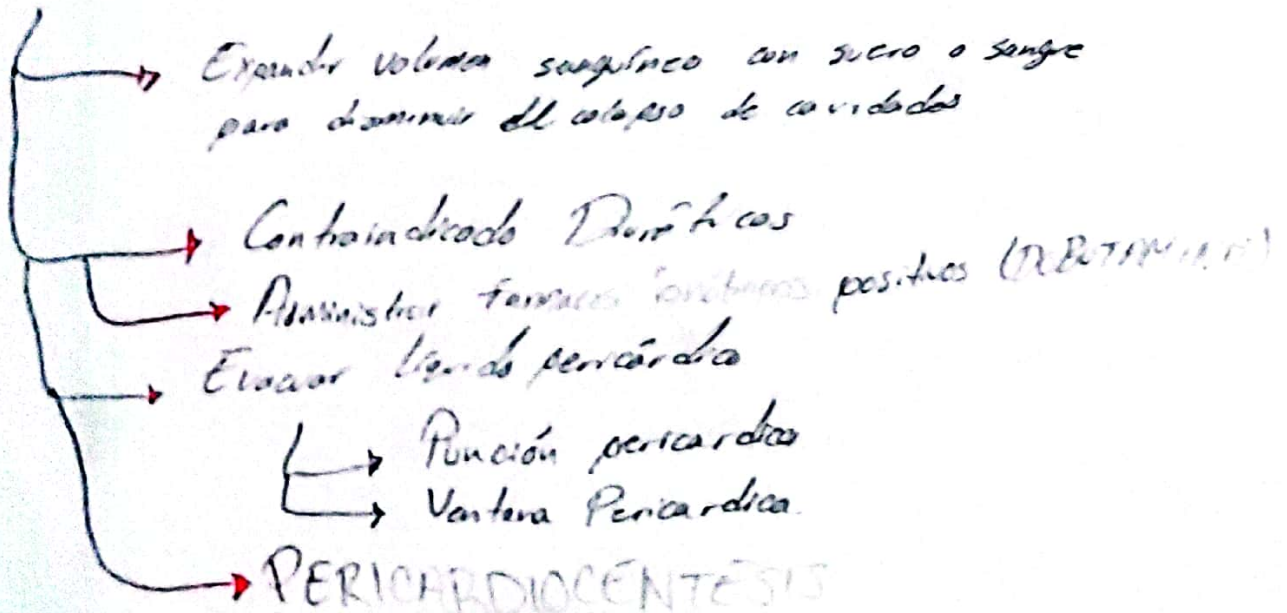 Expander volumen sanguíneo con suero o sangre
para disminuir el colapso de cavidades
Contraindicado Diuréticos
Administrar farmacos ionótropos positivos (DOBUTAMINA)
Evacuar líquido pericárdico
Punción pericardica
Ventana Pericardica.
PERICARDIOCENTESIS